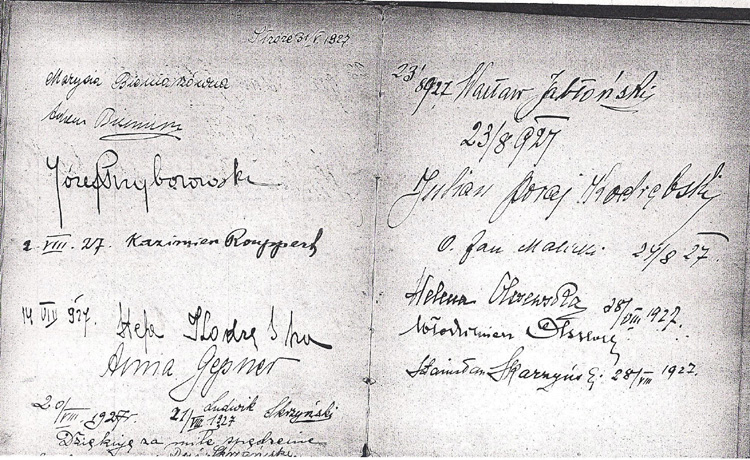 31/V. 1927
Marysia Bieniakówna
Józef Przyborowski
2. VIII. 27. Kazimierz Rouppert
14 VIII 927.
Anna Gepner
20/VIII. 1927r. 21/VIII 1927 Ludwik Skrzyński
Dziękuję za miłe spędzenie
23/8 927 Wacław Jabłoński
23/8 927
Julian Poraj Kodrębski
O. Jan Malicki 24/8 27.
Helena Olszewska 28/VIII 1927.
Włodzimierz
Stanisław Skarzyński. 28/VIII 1927.